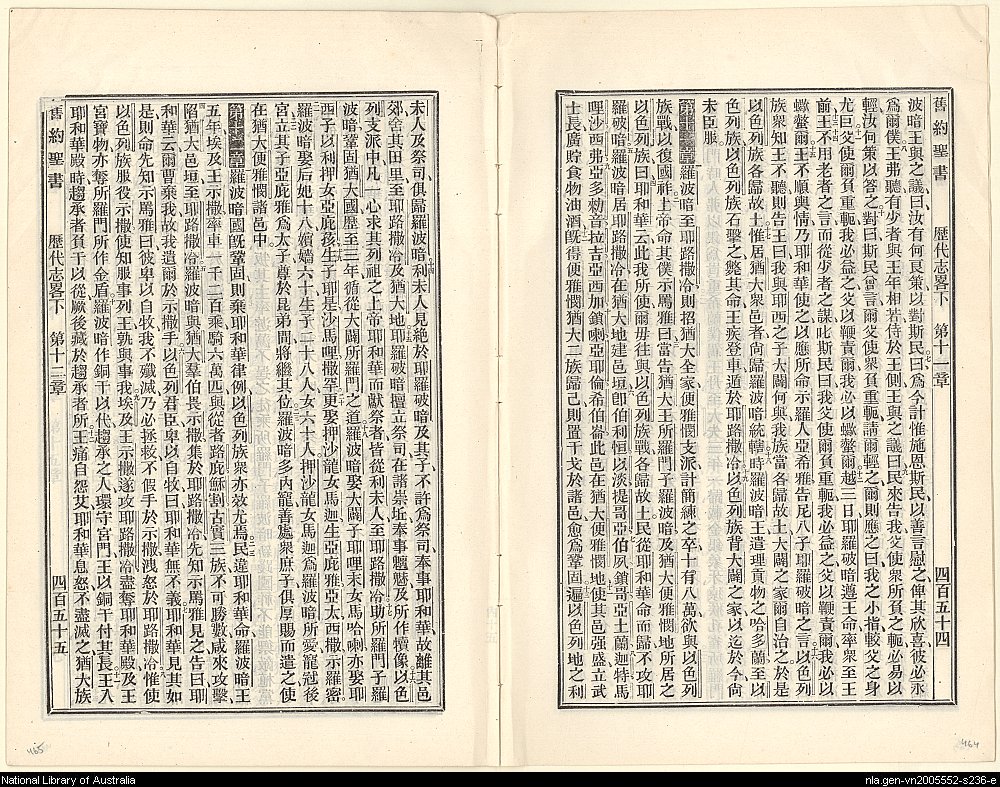 舊約聖書 歷代志畧下 第十一章 四百五十四
波暗王與之議曰汝有何良策以對斯民曰爲今計惟施恩斯民以善言慰之俾其欣喜彼必永
爲爾僕王弗聽有少者與王年相若侍於王側王與之議曰民來告我父使衆所負之軛必易以
輕汝何策以答之對曰斯民曾言爾父使衆負重軛請爾輕之爾則應之曰我之小指較父之身
尤巨父使爾負重軛我必益之父以鞭責爾我必以蠍螫爾越三日耶羅破暗遵王命率衆至王
前王不用老者之言而從少者之謀叱斯民曰我父使爾負重軛我必益之父以鞭責爾我必以
蠍螫爾王不順輿情乃耶和華使之以應所命示羅人亞希雅告尼八子耶羅破暗之言於是
族衆知王不聽則告王曰我與耶西之子大闢何與我族當各歸故土大闢之家爾自治之於是
以色列族各歸故土惟居猶大衆邑者尙歸羅波暗統轄時羅波暗王遣理貢物之哈多蘭至以
色列族以色列族石擊之斃其命王疾登車遁於耶路撒冷以色列族背大闢之家以迄於今尙
未臣服
羅波暗至耶路撒冷則招猶大全家便雅憫支派計簡練之卒十有八萬欲與以色列
族戰以復國祚上帝命其僕示馬雅曰當告猶大王所羅門子羅波暗及猶大便雅憫地所居之
以色列族曰耶和華云此我所使爾毋往與以色列族戰各歸故土民從耶和華命而歸不攻耶
羅破暗羅波暗居耶路撒冷在猶大地建邑垣卽伯利恒以淡提哥亞伯夙鎖哥亞土蘭迦特馬
哩沙西弗亞多𡌥音拉吉亞西加鎖喇亞耶倫希伯崙此邑在猶大便雅憫地使其邑强盛立武
士長廣貯食物油酒旣得便雅憫猶大二族歸己則置干戈於諸邑愈爲鞏固遍以色列地之利
未人及祭司俱歸羅波暗利未人見絶於耶羅破暗及其子不許爲祭司奉事耶和華故離其邑
郊舍其田里至耶路撒冷及猶大地耶羅破暗擅立祭司在諸崇坵奉事魑魅及所作犢像以色
列支派中凡一心求其列祖之上帝耶和華而獻祭者皆從利未人至耶路撒冷助所羅門子羅
波暗鞏固猶大國歷至三年循從大闢所羅門之道羅波暗娶大闢子耶哩末女馬哈喇亦娶耶
西子以利押女亞庇孩生子耶是沙馬哩撒罕更娶押沙龍女馬迦生亞庇雅亞太西撒示羅密
羅波暗娶后妃十八嬪嬙六十生子二十八人女六十人押沙龍女馬迦爲羅波暗所愛寵冠後
宮立其子亞庇雅爲太子尊於昆弟間將繼其位羅波暗多內寵善處衆庶子俱厚賜而遣之使
在猶大便雅憫諸邑中
羅波暗國旣鞏固則棄耶和華律例以色列族衆亦效尤焉民違耶和華命羅波暗王
五年埃及王示撒率車一千二百乘騎六萬匹與從者路庇穌割古實三族不可勝數咸來攻擊
陷猶大邑垣至耶路撒冷羅波暗與猶大羣伯畏示撒集於耶路撒冷先知示馬雅見之告曰耶
和華云爾曹棄我故我遺爾於示撒手以色列君臣卑以自牧曰耶和華無不義耶和華見其如
是則命先知示馬雅曰彼卑以自牧我不殲滅乃必拯救不假手於示撒洩怒於耶路撒冷惟使
以色列族服役示撒使知服事列王孰與事我埃及王示撒遂攻耶路撒冷盡奪耶和華殿及王
宮寶物亦奪所羅門所作金盾羅波暗作銅干以代趨承之人環守宮門王以銅干付其長王入
耶和華殿時趨承者負干以從厥後藏於趨承者所王痛自怨艾耶和華息怒不盡滅之猶大族
舊約聖書 歷代志畧下 第十二章 四百五十五
464
465
National Library of Australia
nla.gen-vn2005552-s236-e